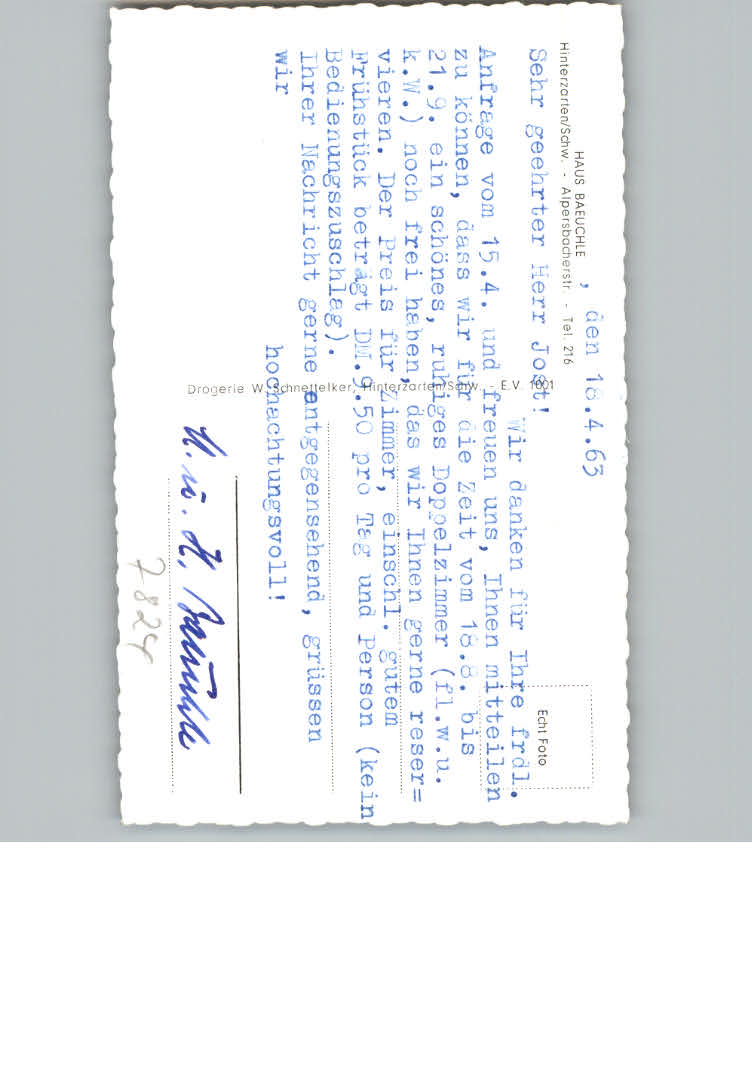 HAUS BAEUCHLE
Hinterzarten/Schw. - Alpersbacherstr. - Tel. 216
, den 18.4.63
Sehr geehrter Herr Jost!
Wir danken für Ihre frdl.
Anfrage vom 15.4. und freuen uns, Ihnen mitteilen
zu können, dass wir für die Zeit vom 18.8. bis
21.9. ein schönes, ruhiges Doppelzimmer (fl.W.u.
k.W.) noch frei haben, das wir Ihnen gerne reser=
vieren. Der Preis für Zimmer, einschl. gutem
Frühstück beträgt DM.9.50 pro Tag und Person (kein
Bedienungszuschlag).
Ihrer Nachricht gerne entgegensehend, grüssen
wir
hochachtungsvoll!
H. u. H. Baeuchle
7824
Echt Foto
Drogerie W. Schnettelker, Hinterzarten/Schw. - E.V. 1001